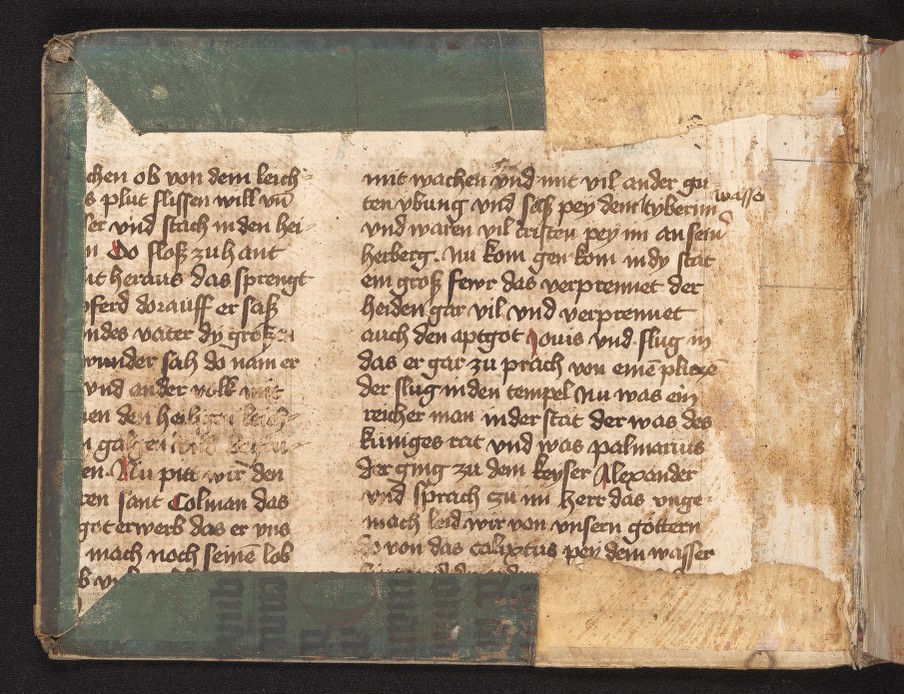 chen ob von dem leich-
s plut flissen will vn̄
ser vnd stach in den hei-
n Do floß zuhant
it heraus das sprengt
pferd dorauff er saß
ndes vater dy groß
wunder sah do nam er
vnd ander volk mit
en den heiligen leich-
n ganczen
en. Nu pitt wir den
ren sant Colman das
got erwerb das er vns
mach noch seine lob
mit wachen vnd mit vil ander gu-
ten vbung vnd saß pey dem tyberim wasser
vnd waren vil cristen pey im an sein̄
herberg. Nu kom gen kom in dy stat
ein groß fewr das verprennet der
heiden gar vil vnd verprennet
auch den aptgot Jouis vnd slug in
das er gar zu prach von einē plicze
der slug in den tempel Nu was ein
reicher man in der stat der was des
kuniges rat vnd was palmatius
der ging zu dem keyser Alexander
vnd sprach czu im Herr das vnge-
mach leid wir von vnsern göttern
So von das calixtus pey dem wasser